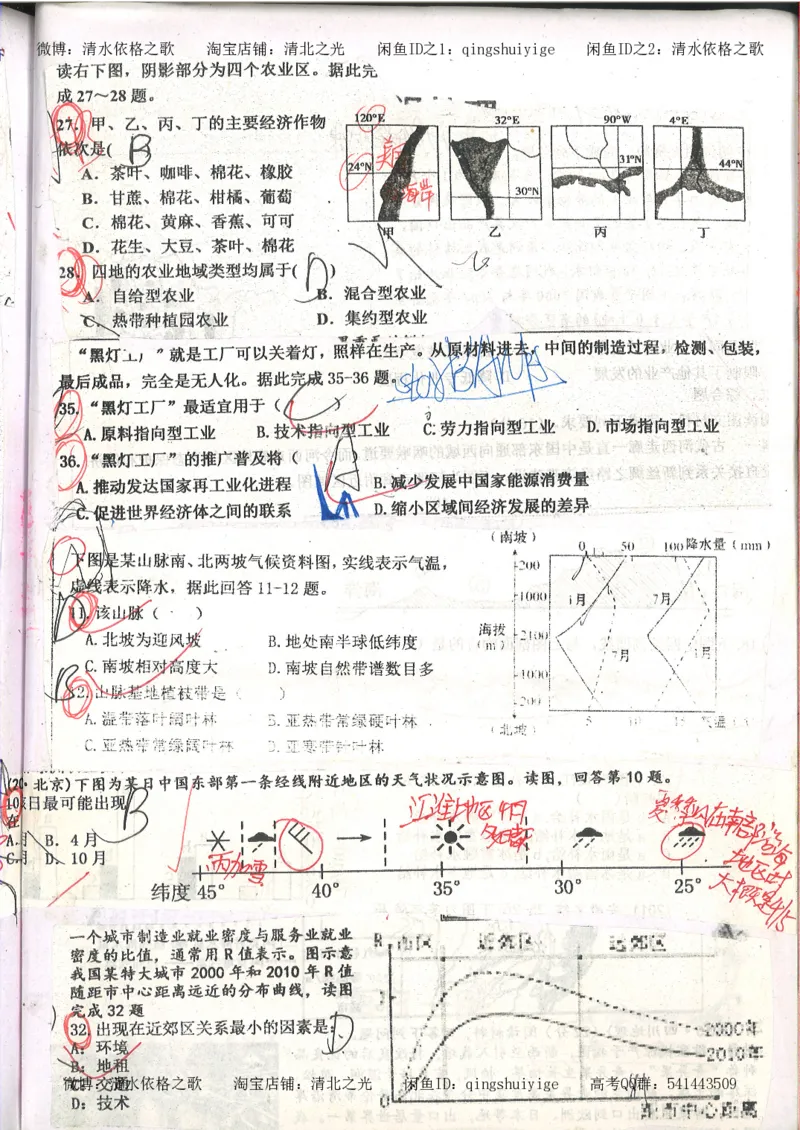 微博：清水依格之歌 淘宝店铺：清北之光 闲鱼ID之1：qingshuiyige 闲鱼ID之2：清水依格之歌
读右下图，阴影部分为四个农业区。据此完
成 27～28 题。
27. 甲、乙、丙、丁的主要经济作物
依次是( B
A. 茶叶、咖啡、棉花、橡胶
B. 甘蔗、棉花、柑橘、葡萄
C. 棉花、黄麻、香蕉、可可
D. 花生、大豆、茶叶、棉花
120°E 32°E 90°W 4°E
24°N 30°N 31°N 44°N
海岸
甲 乙 丙 丁
28. 四地的农业地域类型均属于( D )
A. 自给型农业 B. 混合型农业
C. 热带种植园农业 D. 集约型农业
“黑灯工厂”就是工厂可以关着灯，照样在生产。从原材料进去，中间的制造过程，检测、包装，
最后成品，完全是无人化。据此完成 35-36 题。
35. “黑灯工厂”最适宜用于（ ）
A.原料指向型工业 B.技术指向型工业 C.劳力指向型工业 D.市场指向型工业
36. “黑灯工厂”的推广普及将（
A.推动发达国家再工业化进程 B.减少发展中国家能源消费量
C.促进世界经济体之间的联系 D.缩小区域间经济发展的差异
下图是某山脉南、北两坡气候资料图，实线表示气温，
虚线表示降水，据此回答 11-12 题。
11.该山脉（ ）
A.北坡为迎风坡 B.地处南半球低纬度
C.南坡相对高度大 D.南坡自然带谱数目多
12.山脉基地植被带是（ ）
A.温带落叶阔叶林 B.亚热带常绿硬叶林
C.亚热带常绿阔叶林 D.亚寒带针叶林
(南坡) 0 50 100 降水量（mm）
200
1000 1月 7月
海拔 2100
(m)
7月 1月
1000
200
(北坡) 5 10 15 气温
北京）下图为某日中国东部第一条经线附近地区的天气状况示意图。读图，回答第 10 题。
10.该日最可能出现
在 B
A.月 B. 4月
C.月 D. 10月
江淮地区
纬度 45° 40° 35° 30° 25°
一个城市制造业就业密度与服务业就业
密度的比值，通常用 R 值表示。图示意
我国某特大城市 2000 年和 2010 年 R 值
随距市中心距离远近的分布曲线，读图
完成 32 题
32.出现在近郊区关系最小的因素是: D
A: 环境
B: 地租
C: 交通
D: 技术
R 市区 近郊区 远郊区
2000年
2010年
0
距市中心距离
微博：清水依格之歌 淘宝店铺：清北之光 闲鱼ID：qingshuiyige 高考QQ群：541443509